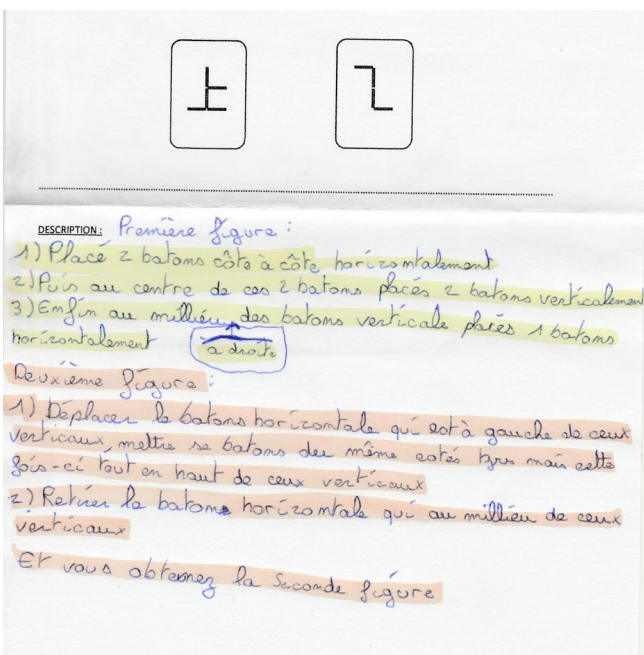 DESCRIPTION: Première figure :
1) Placé 2 batons côte à côte horizontalement
2) Puis au centre de ces 2 batons placés 2 batons verticalement
3) Enfin au millieu des batons verticale placés 1 batons
horizontalement à droite
Deuxième figure :
1) Déplacer le batons horizontale qui est à gauche de ceux
verticaux, mettre se batons du même cotés mais cette
fois-ci tout en haut de ceux verticaux
2) Retirer le batons horizontale qui au millieu de ceux
verticaux
Et vous obtenez la seconde figure